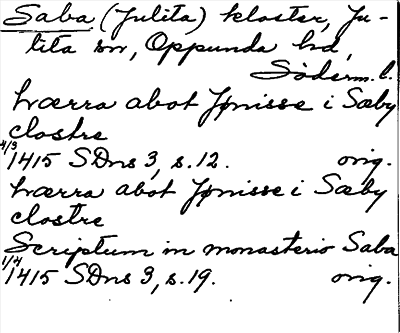 Saba (Julita) kloster, Ju-
lita sn, Oppunda hd,
Söderm. l.
hwærra abot Jønisse i Sæby
clostre
4/3 1415 SDns 3, s. 12. orig.
hwærra abot Jønisse i Sæby
clostre
Scriptum in monasterio Saba
1/4 1415 SDns 3, s. 19. orig.